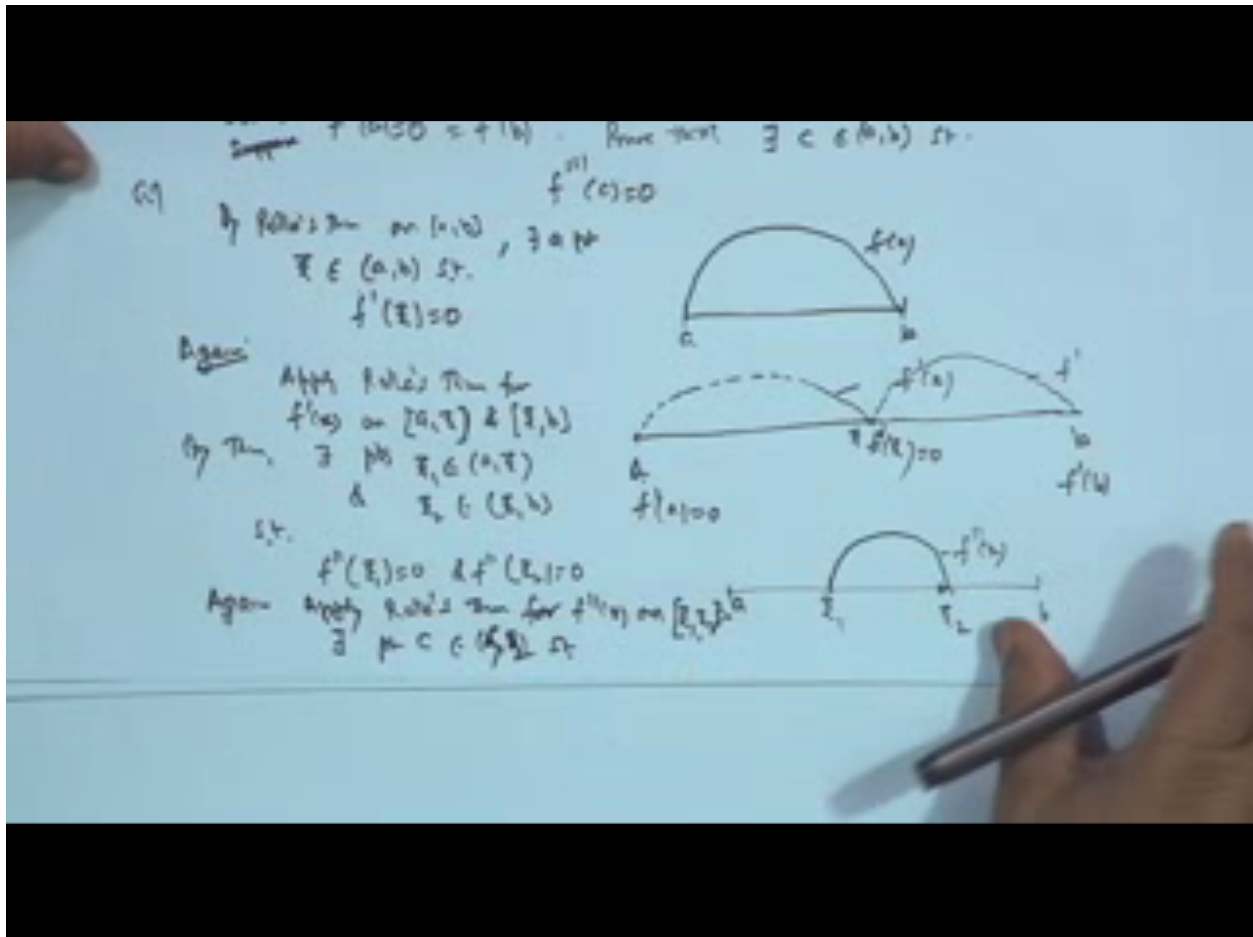 = f(b). Prove that ∃ c ∈ (a,b) st.
f'''(c)=0
By Rolle's Thm on [a,b], ∃ a pt
ξ ∈ (a,b) st.
f'(ξ)=0
Again
Apply Rolle's Thm for
f'(x) on [a,ξ] & [ξ,b]
By Thm, ∃ pts ξ₁ ∈ (a,ξ)
& ξ₂ ∈ (ξ,b)
s.t.
f''(ξ₁)=0 & f''(ξ₂)=0
Again Apply Rolle's Thm for f''(x) on [ξ₁,ξ₂],
∃ pt c ∈ (ξ₁,ξ₂) st
f(x)
a b
f'(x) f'
a ξ f'(ξ)=0 b
f'(a)=0 f'(b)
f''(x)
a ξ₁ ξ₂ b